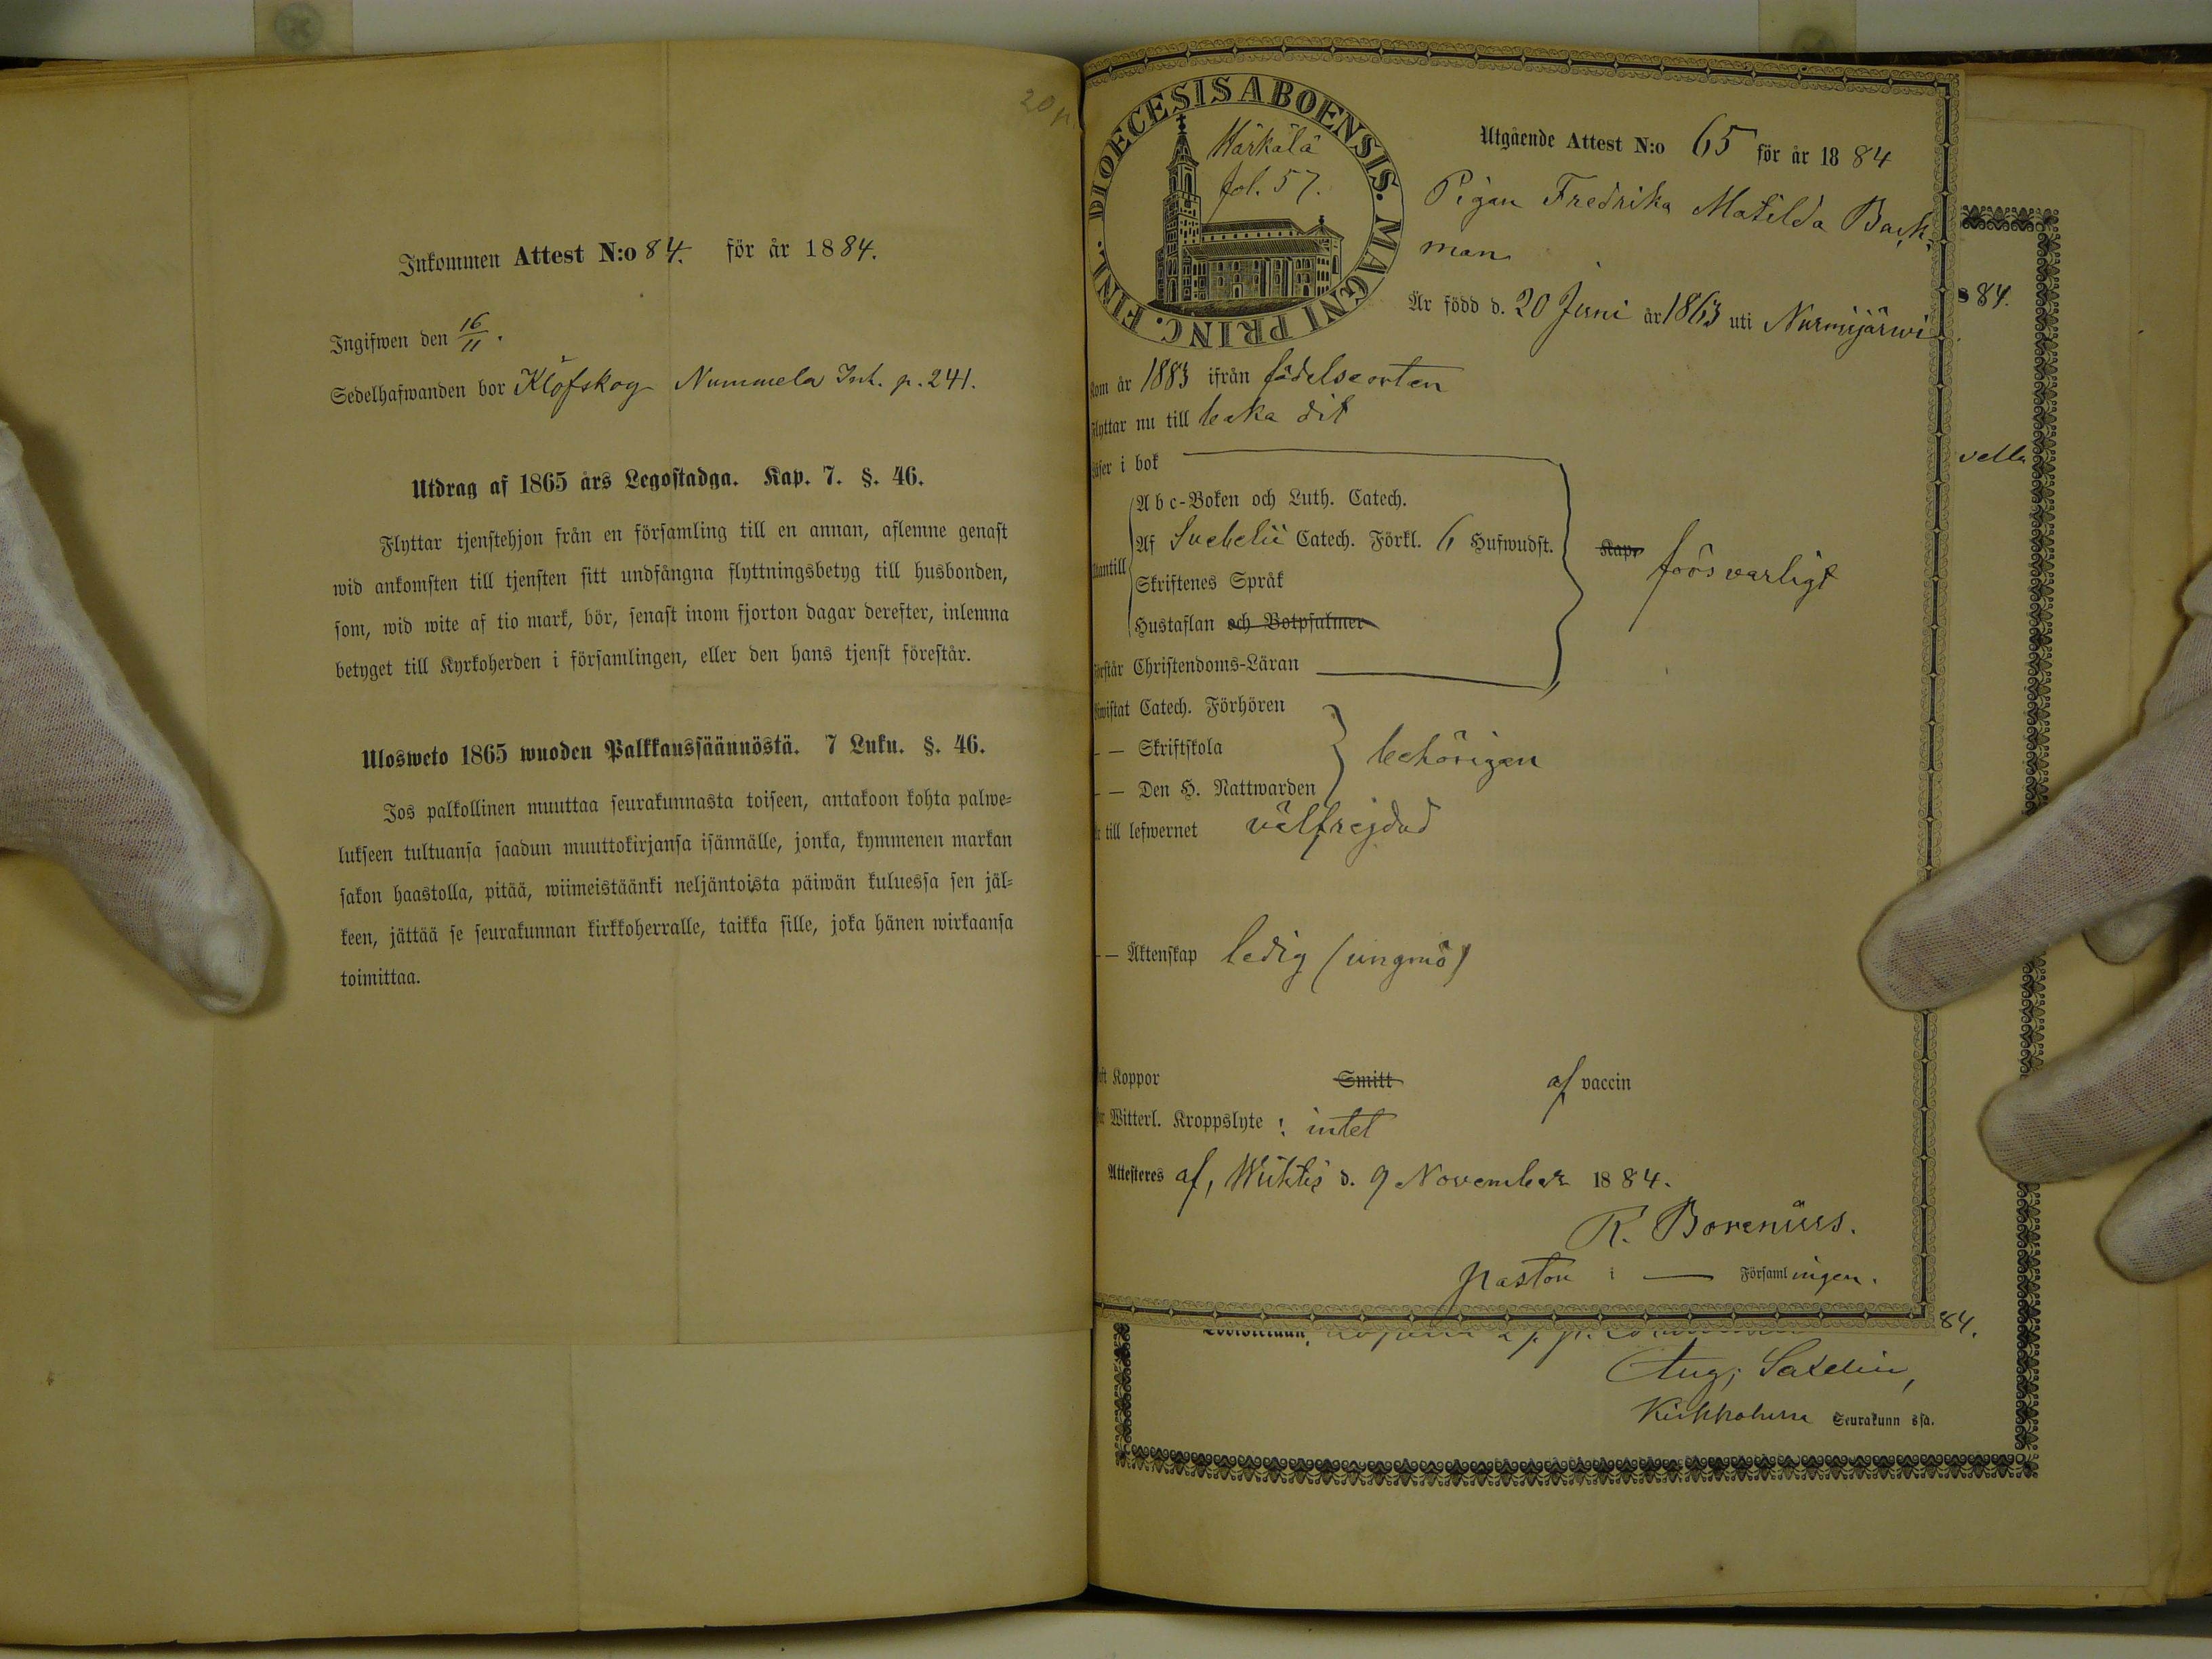 20 p.
Inkommen Attest N:o 84. för år 1884.
Ingifwen den 16/11.
Sedelhafwanden bor Klöfskog Nummela Inh. p. 241.
Utdrag af 1865 års Legostadga. Kap. 7. §. 46.
Flyttar tjenstehjon från en församling till en annan, aflemne genast
wid ankomsten till tjensten sitt undfångna flyttningsbetyg till husbonden,
som, wid wite af tio mark, bör, senast inom fjorton dagar derefter, inlemna
betyget till Kyrkoherden i församlingen, eller den hans tjenst förestår.
Ulosweto 1865 wuoden Palkkaussäännöstä. 7 Luku. §. 46.
Jos palkollinen muuttaa seurakunnasta toiseen, antakoon kohta palwe=
lukseen tultuansa saadun muuttokirjansa isännälle, jonka, kymmenen markan
sakon haastolla, pitää, wiimeistäänki neljäntoista päiwän kuluessa sen jäl=
keen, jättää se seurakunnan kirkkoherralle, taikka sille, joka hänen wirkaansa
toimittaa.
DIOECESIS ABOENSIS. MAGNI PRINC. FINL.
Härkälä
fol. 57.
Utgående Attest N:o 65 för år 1884
Pigan Fredrika Matilda Back-
man
Är född d. 20 Juni år 1863 uti Nurmijärwi
kom år 1883 ifrån födelseorten
flyttar nu till baka dit
läser i bok
A b c-Boken och Luth. Catech.
Af Svebelii Catech. Förkl. 6 Hufwudst.
utantill
Skriftenes Språk
Hustaflan och Botpsalmer
Kapr försvarligt
förstår Christendoms-Läran
bewistat Catech. Förhören
— — Skriftskola
behörigen
— — Den H. Nattwarden
är till lefwernet välfrejdad
— — Äktenskap ledig (ungmö)
haft Koppor Smitt af vaccin
har Witterl. Kroppslyte: intet
Attesteres af, Wichtis d. 9 November 1884.
R. Borenius.
pastor i — Församlingen.
84.
vella
84.
Aug;
Kirkkoherra Seurakunnassa.